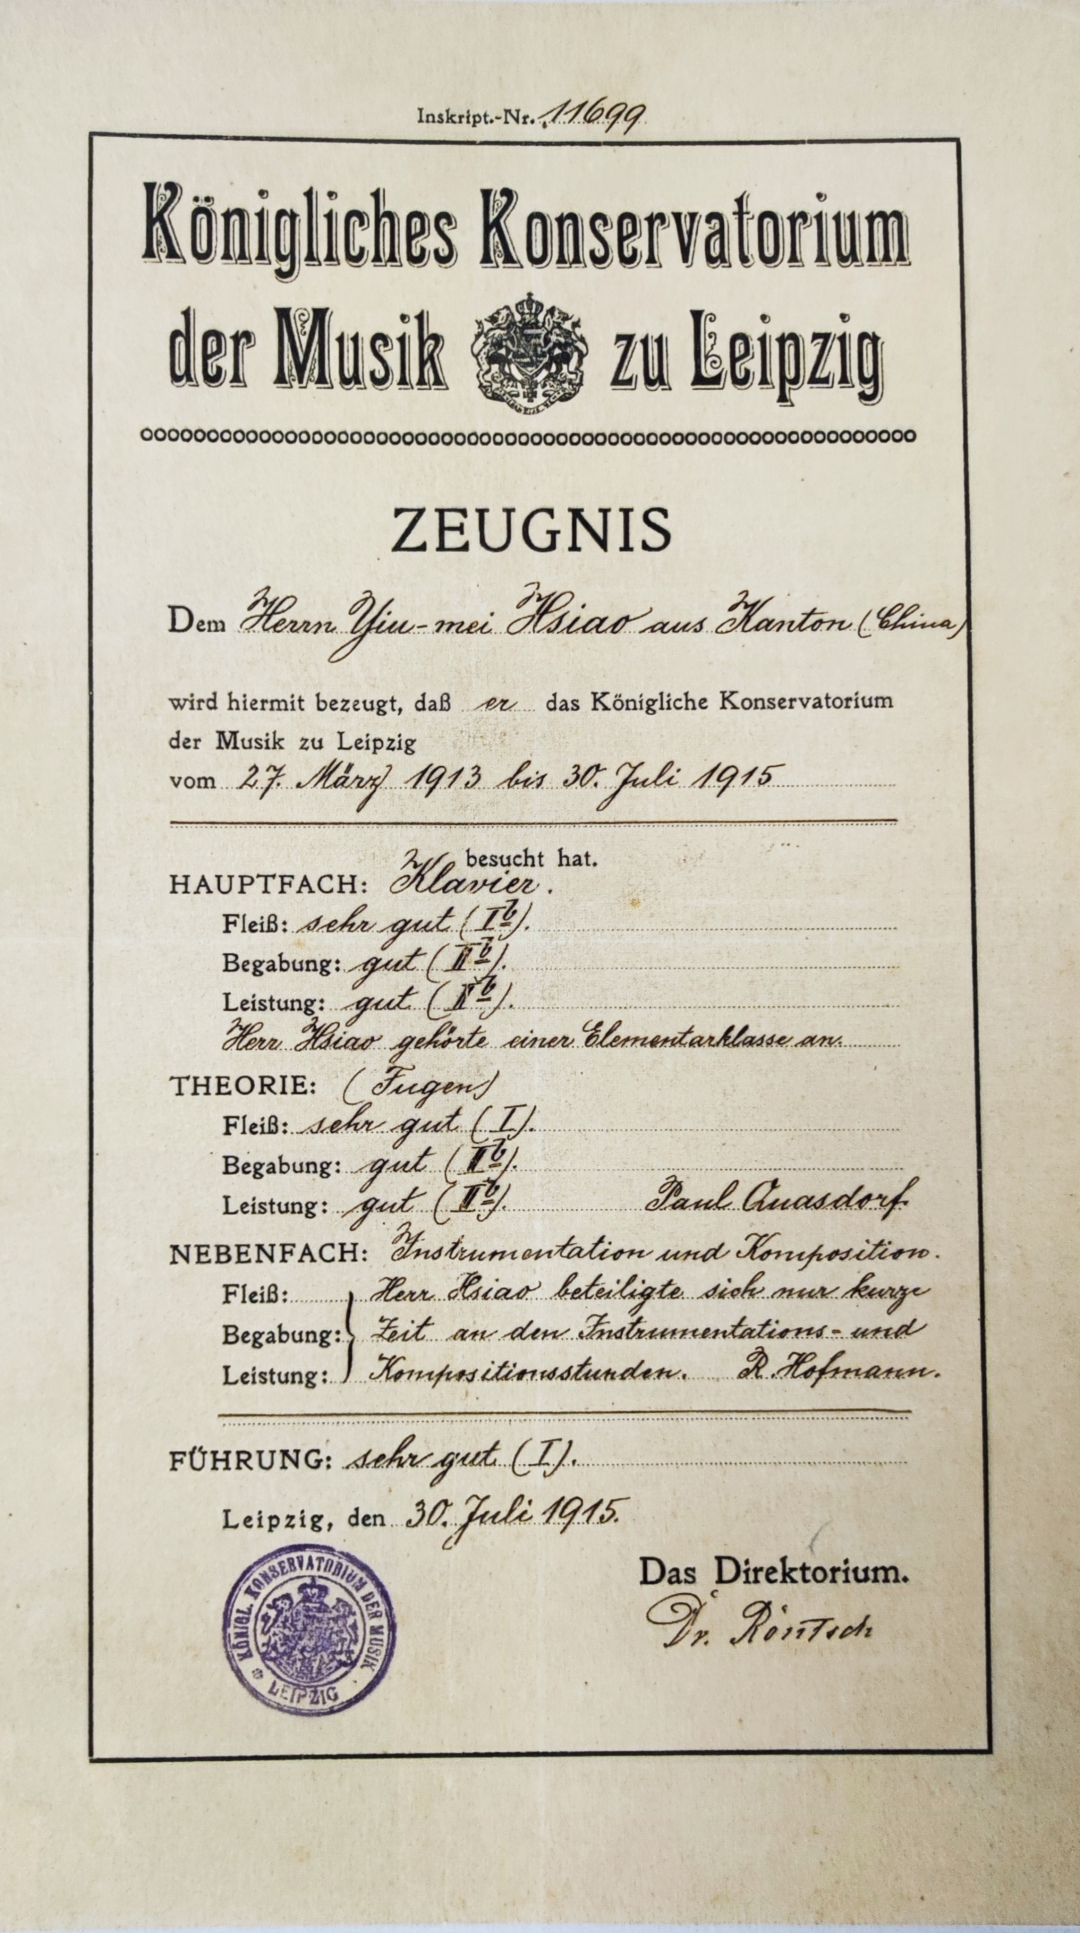 Inskript.-Nr. 11699
Königliches Konservatorium
der Musik zu Leipzig
ZEUGNIS
Dem Herrn Yiu-mei Hsiao aus Kanton (China)
wird hiermit bezeugt, daß er das Königliche Konservatorium
der Musik zu Leipzig
vom 27. März 1913 bis 30. Juli 1915
besucht hat.
HAUPTFACH: Klavier.
Fleiß: sehr gut (Ib).
Begabung: gut (IIb).
Leistung: gut (IIb).
Herr Hsiao gehörte einer Elementarklasse an.
THEORIE: (Fugen)
Fleiß: sehr gut (I).
Begabung: gut (IIb).
Leistung: gut (IIb). Paul Quasdorf.
NEBENFACH: Instrumentation und Komposition.
Fleiß: Herr Hsiao beteiligte sich nur kurze
Begabung: Zeit an den Instrumentations- und
Leistung: Kompositionsstunden. R. Hofmann.
FÜHRUNG: sehr gut (I).
Leipzig, den 30. Juli 1915.
KÖNIGL. KONSERVATORIUM DER MUSIK
LEIPZIG
Das Direktorium.
Dr. Röntsch